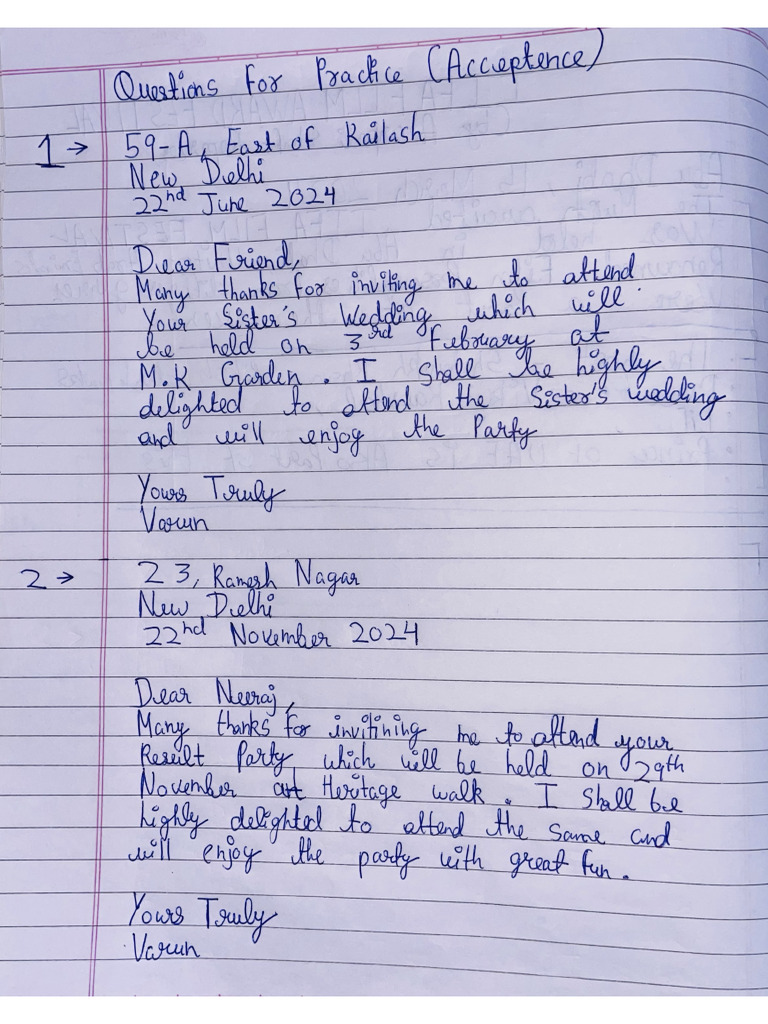 Questions For Practice (Acceptence)
1 → 59-A, East of Kailash
New Delhi
22nd June 2024
Dear Friend,
Many thanks for inviting me to attend
Your Sister's Wedding which will
be held on 3rd February at
M.K Garden. I shall be highly
delighted to attend the Sister's wedding
and will enjoy the Party
Yours Truly
Varun
2 → 23, Ramesh Nagar
New Delhi
22nd November 2024
Dear Neeraj,
Many thanks for invitining me to attend your
Result Party, which will be held on 29th
November at Heritage walk. I shall be
highly delighted to attend the same and
will enjoy the party with great fun.
Yours Truly
Varun